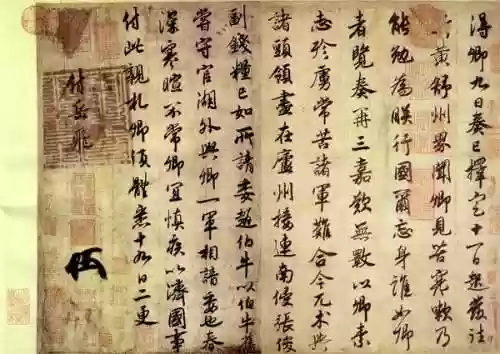 得卿九日奏已擇定十一日起發往
蘄黃舒州界聞卿見苦寒嗽乃
能勉為朕行國爾忘身誰如卿
者覽奏再三嘉歎無數以卿素
志殄虜常苦諸軍難合今兀朮與
諸頭領盡在廬州接連南侵張俊
副錢糧已如所請委趙伯牛以伯牛舊
嘗守官湖外與卿一軍相諳委也春
深寒暄不常卿宜慎疾以濟國事
付此親札卿須體悉十九日二更
付岳飛